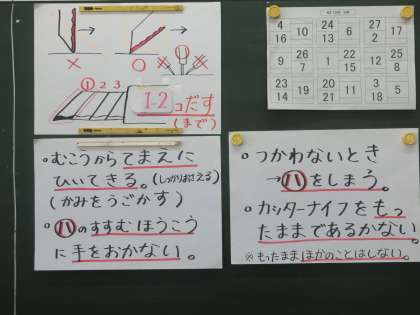 × ○
① 2 3
1-2 コだす
(まで)
・むこうからてまえに
ひいてきる。(しっかりおさえる)
(かみをうごかす)
・ハのすすむほうこう
に手をおかない。
・つかわないとき
→ハをしまう。
・カッターナイフをもっ
たままであるかない。
※もったままほかのことはしない。
4 16 10 24 13 6 27 2 17
9 26 1 22 15 7 25 8 12
23 14 19 21 20 11 3 18 5